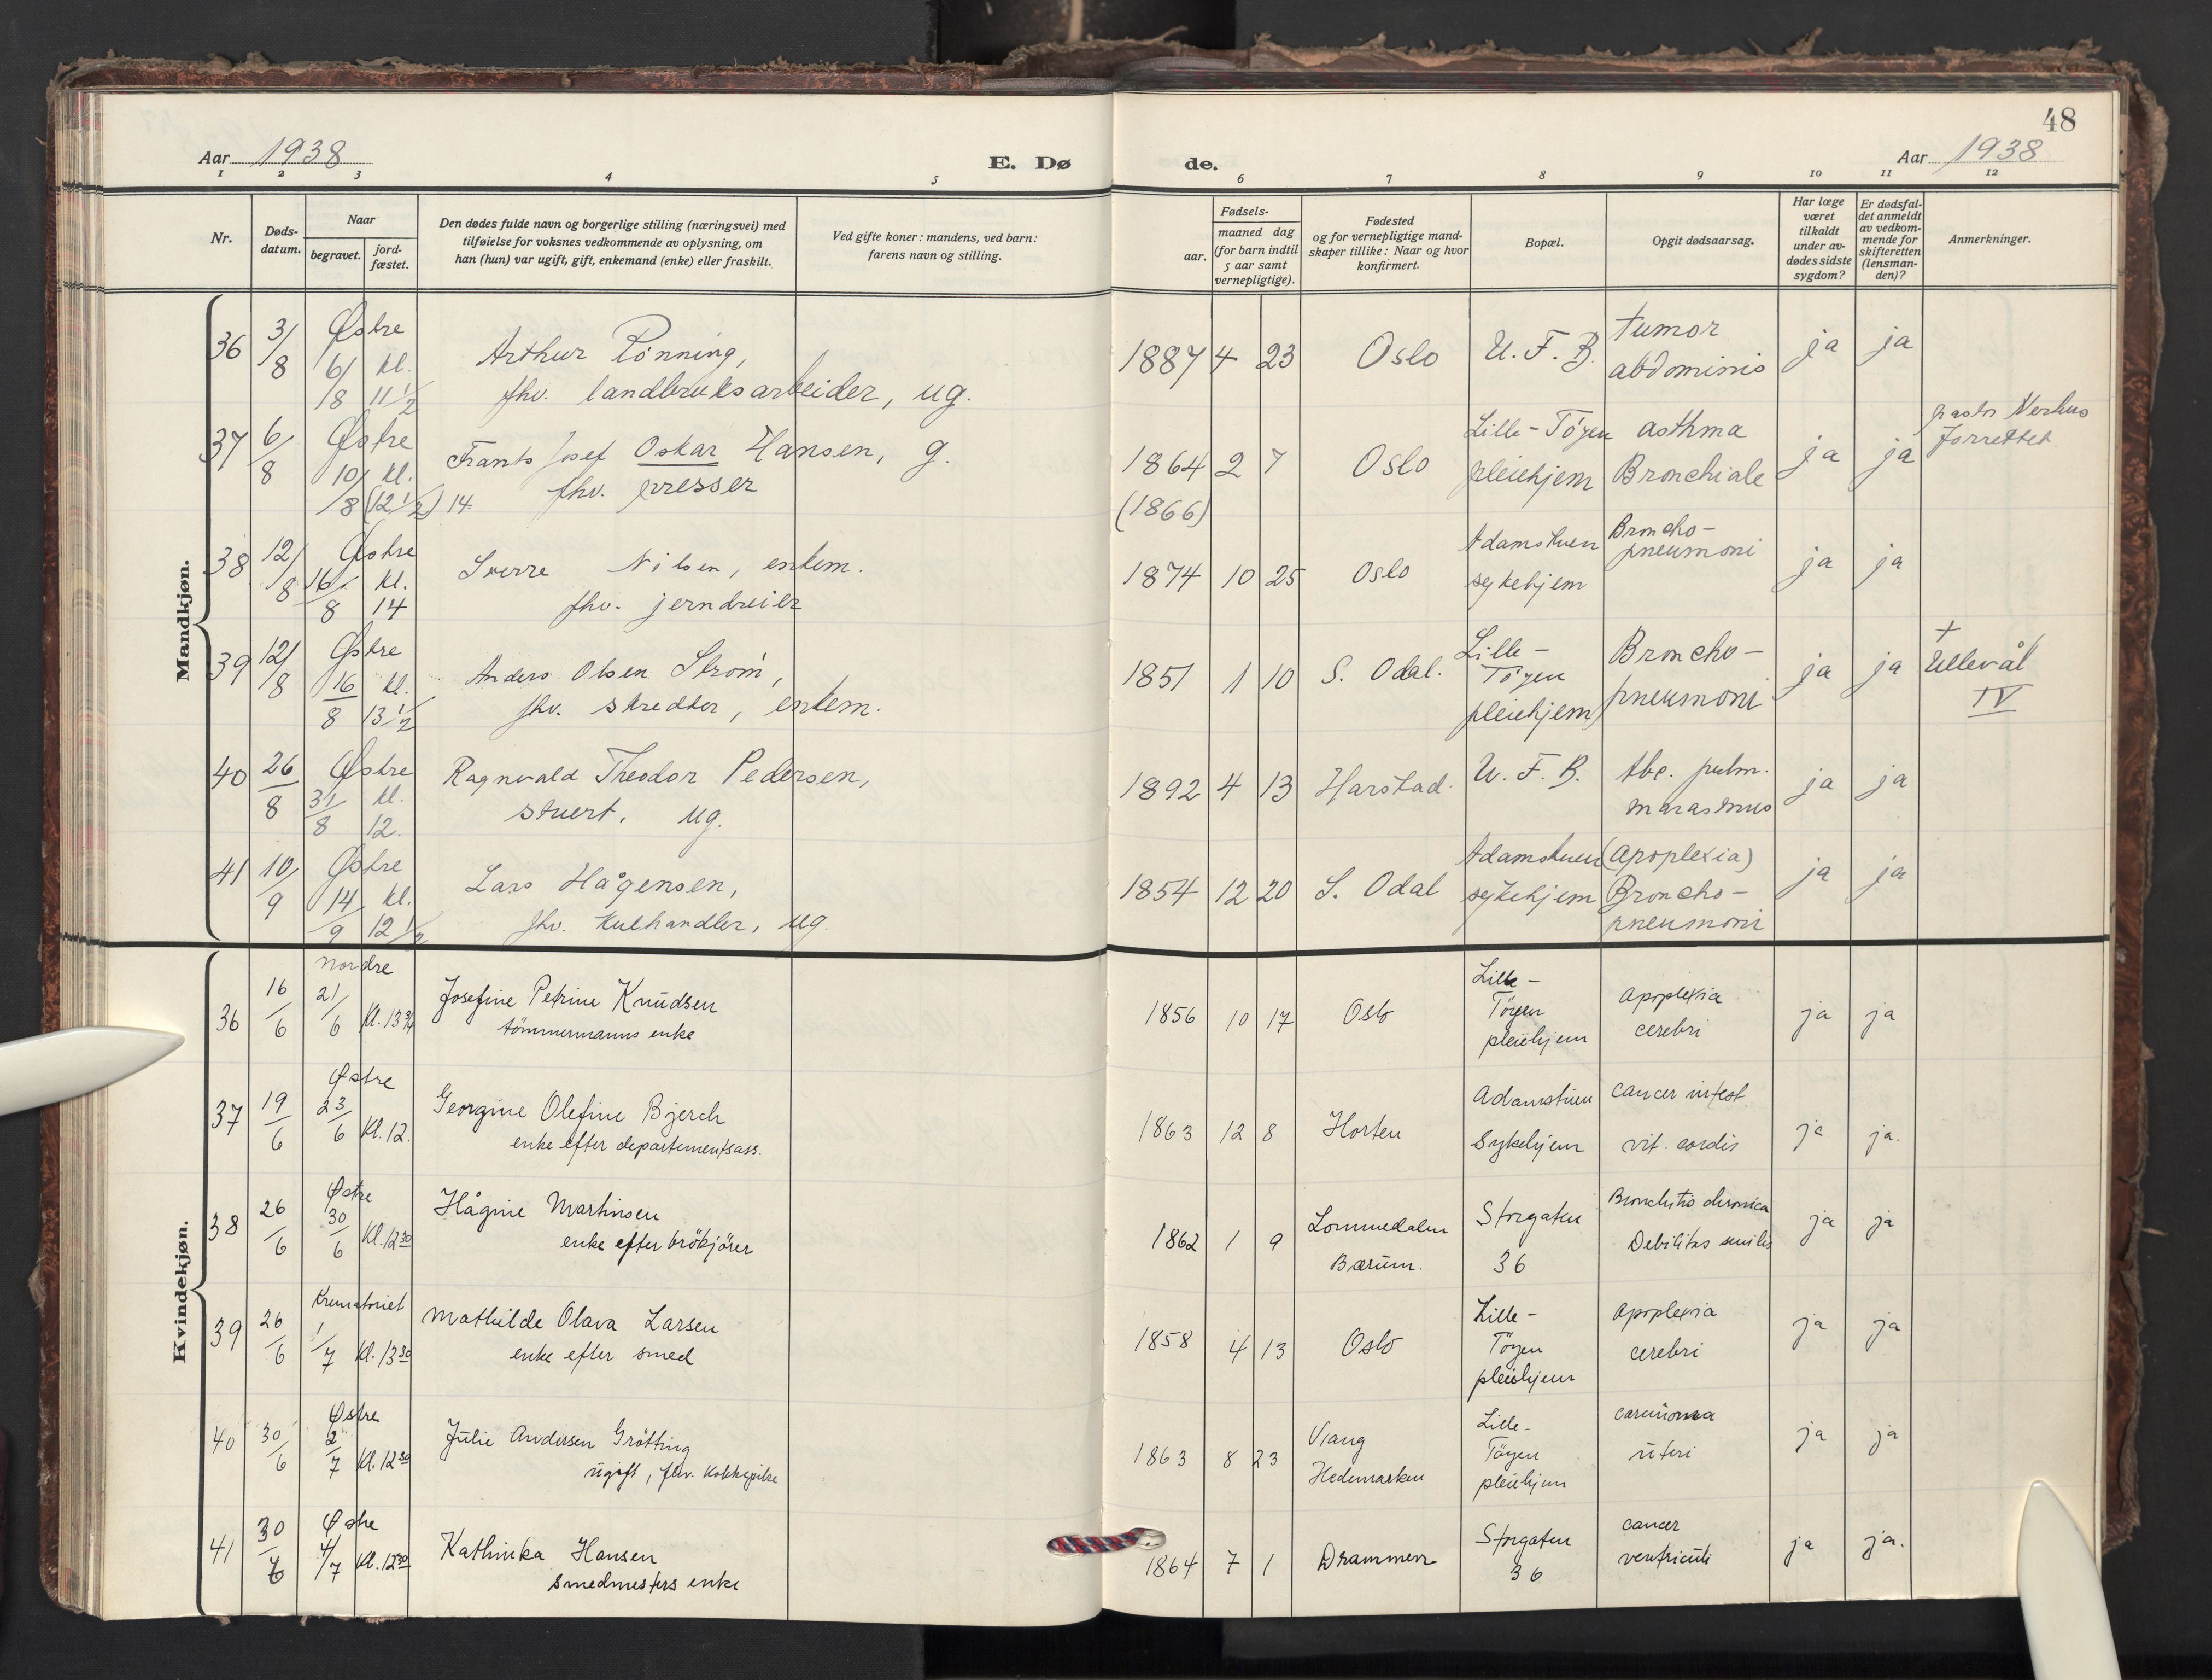 48
Aar 1938
E. Dø
de.
Aar 1938
1 2 3 4 5
6 7 8 9 10 11 12
Nr.
Døds-
datum.
Naar
begravet.
jord-
fæstet.
Den dødes fulde navn og borgerlige stilling (næringsvei) med
tilføielse for voksnes vedkommende av oplysning, om
han (hun) var ugift, gift, enkemand (enke) eller fraskilt.
Ved gifte koner: mandens, ved barn:
farens navn og stilling.
Fødsels-
aar.
maaned dag
(for barn indtil
5 aar samt
vernepligtige).
Fødested
og for vernepligtige mand-
skaper tillike: Naar og hvor
konfirmert.
Bopæl.
Opgit dødsaarsag.
Har læge
været
tilkaldt
under av-
dødes sidste
sygdom?
Er dødsfal-
det anmeldt
av vedkom-
mende for
skifteretten
(lensman-
den)?
Anmerkninger.
Mandkjøn.
36 3/8 Østre 6/8 kl. 11 1/2
Arthur Rønning,
fhv. landbruksarbeider, ug.
1887 4 23 Oslo U. F. B. tumor
abdominis ja ja
37 6/8 Østre 10/8 kl. (12 1/2) 14
Frants Josef Oskar Hansen, g.
fhv. presser
1864 2 7 Oslo Lille-Töyen
pleiehjem asthma
Bronchiale ja ja
(1866)
pastor
forrettet
38 12/8 Østre 16/8 kl. 14
Sverre Nilsen, enkem.
fhv. jerndreier
1874 10 25 Oslo Adamstuen
sykehjem Broncho-
pneumoni ja ja
39 12/8 Østre 16/8 kl. 13 1/2
Anders Olsen Strøm,
fhv. skredder, enkem.
1851 1 10 S. Odal. Lille-
Töyen
pleiehjem Broncho-
pneumoni ja ja
+
Ullevål
IV
40 26/8 Østre 31/8 kl. 12.
Ragnvald Theodor Pedersen,
stuert, ug.
1892 4 13 Harstad. U. F. B. tbc. pulm.
marasmus ja ja
41 10/9 Østre 14/9 kl. 12 1/2
Lars Hågensen,
fhv. kulhandler, ug.
1854 12 20 S. Odal Adamstuen
sykehjem (apoplexia)
Broncho-
pneumoni ja ja
Kvindekjøn.
36 16/6 Nordre 21/6 Kl. 13 3/4
Josefine Petrine Knudsen
tömmermanns enke
1856 10 17 Oslo Lille-
Töyen
pleiehjem apoplexia
cerebri ja ja
37 19/6 Østre 23/6 Kl. 12.
Georgine Olefine Bjerch
enke efter departementsass.
1863 12 8 Horten Adamstuen
Sykehjem cancer intest.
vit. cordis ja ja.
38 26/6 Østre 30/6 Kl. 12 30
Hågine Martinsen
enke efter brökjörer
1862 1 9 Lommedalen
Bærum. Storgaten
36 Bronchitis chronica
Debilitas senilis ja ja
39 26/6 Krematoriet 1/7 Kl. 13 30
Mathilde Olava Larsen
enke efter smed
1858 4 13 Oslo Lille-
Töyen
pleiehjem apoplexia
cerebri ja ja
40 30/6 Østre 2/7 Kl. 12 30
Julie Andersen Grötting
ugift, fhv. kokkepike
1863 8 23 Vang
Hedemarken Lille-
Töyen
pleiehjem carcinoma
uteri ja ja
41 30/6 Østre 4/7 Kl. 12 30
Kathinka Hansen
smedmesters enke
1864 7 1 Drammen Storgaten
36 cancer
ventriculi ja ja.